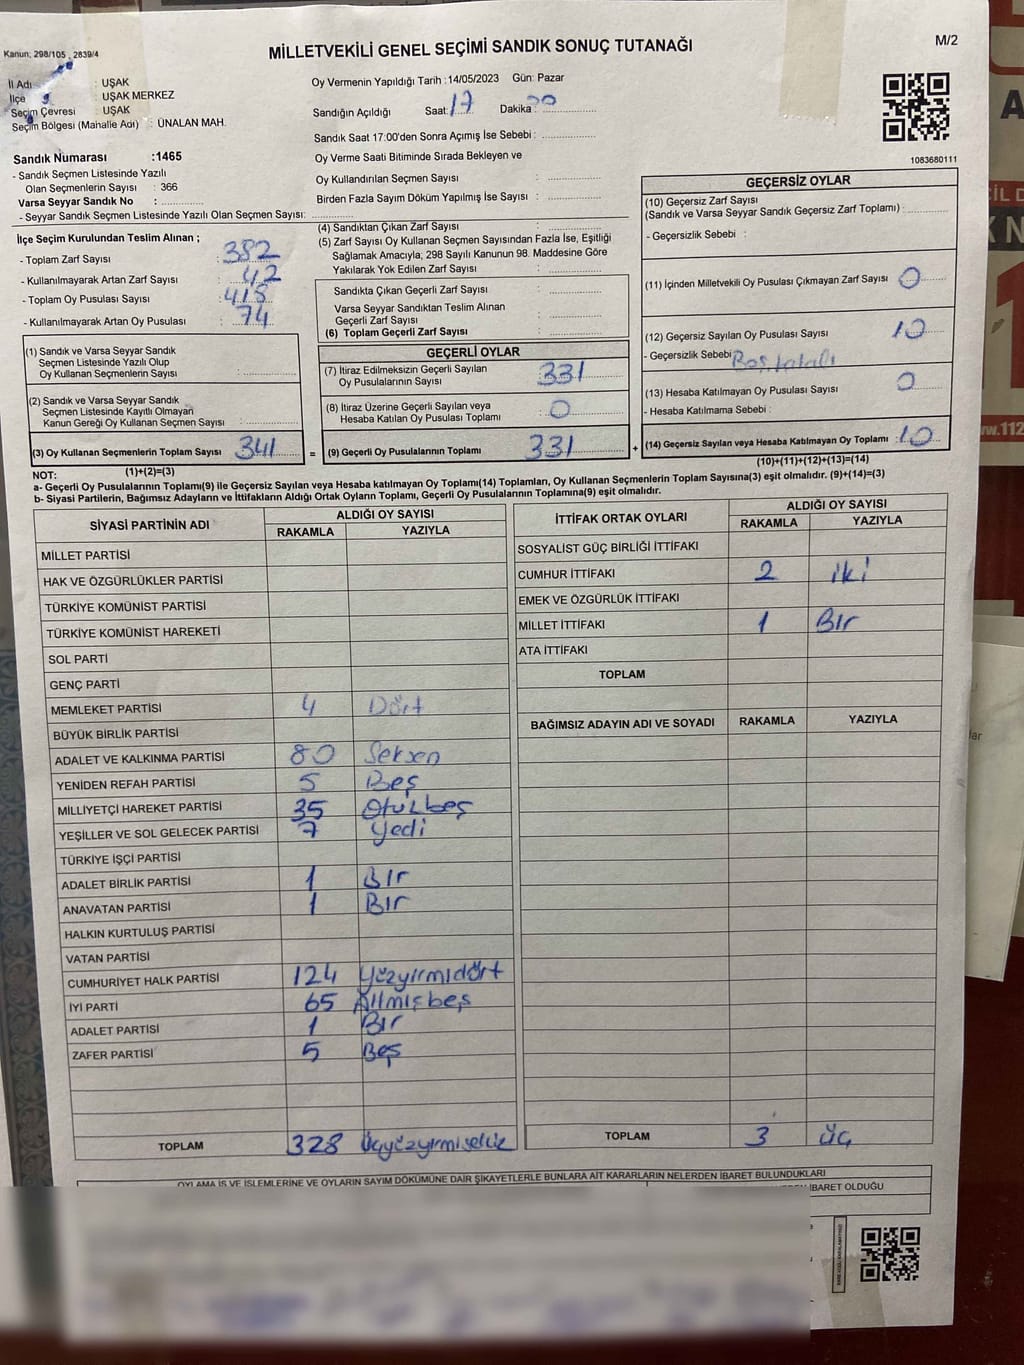 Kanun; 298/105, 2839/4
MİLLETVEKİLİ GENEL SEÇİMİ SANDIK SONUÇ TUTANAĞI
M/2
İl Adı : UŞAK
İlçe : UŞAK MERKEZ
Seçim Çevresi : UŞAK
Seçim Bölgesi (Mahalle Adı) : ÜNALAN MAH.
Sandık Numarası :1465
- Sandık Seçmen Listesinde Yazılı
Olan Seçmenlerin Sayısı : 366
Varsa Seyyar Sandık No :
- Seyyar Sandık Seçmen Listesinde Yazılı Olan Seçmen Sayısı:
Oy Vermenin Yapıldığı Tarih :14/05/2023 Gün: Pazar
Sandığın Açıldığı Saat: 17 Dakika:
Sandık Saat 17:00'den Sonra Açımış İse Sebebi :
Oy Verme Saati Bitiminde Sırada Bekleyen ve
Oy Kullandırılan Seçmen Sayısı :
Birden Fazla Sayım Döküm Yapılmış İse Sayısı :
1083680111
İlçe Seçim Kurulundan Teslim Alınan ;
- Toplam Zarf Sayısı : 382
- Kullanılmayarak Artan Zarf Sayısı : 42
- Toplam Oy Pusulası Sayısı : 415
- Kullanılmayarak Artan Oy Pusulası : 74
(1) Sandık ve Varsa Seyyar Sandık
Seçmen Listesinde Yazılı Olup
Oy Kullanan Seçmenlerin Sayısı :
(2) Sandık ve Varsa Seyyar Sandık
Seçmen Listesinde Kayıtlı Olmayan
Kanun Gereği Oy Kullanan Seçmen Sayısı :
(3) Oy Kullanan Seçmenlerin Toplam Sayısı : 341
(1)+(2)=(3)
(4) Sandıktan Çıkan Zarf Sayısı :
(5) Zarf Sayısı Oy Kullanan Seçmen Sayısından Fazla İse, Eşitliği
Sağlamak Amacıyla; 298 Sayılı Kanunun 98. Maddesine Göre
Yakılarak Yok Edilen Zarf Sayısı :
Sandıkta Çıkan Geçerli Zarf Sayısı :
Varsa Seyyar Sandıktan Teslim Alınan
Geçerli Zarf Sayısı :
(6) Toplam Geçerli Zarf Sayısı :
GEÇERLİ OYLAR
(7) İtiraz Edilmeksizin Geçerli Sayılan
Oy Pusulalarının Sayısı : 331
(8) İtiraz Üzerine Geçerli Sayılan veya
Hesaba Katılan Oy Pusulası Toplamı : 0
= (9) Geçerli Oy Pusulalarının Toplamı : 331 +
GEÇERSİZ OYLAR
(10) Geçersiz Zarf Sayısı
(Sandık ve Varsa Seyyar Sandık Geçersiz Zarf Toplamı) :
- Geçersizlik Sebebi :
(11) İçinden Milletvekili Oy Pusulası Çıkmayan Zarf Sayısı : 0
(12) Geçersiz Sayılan Oy Pusulası Sayısı : 10
- Geçersizlik Sebebi
(13) Hesaba Katılmayan Oy Pusulası Sayısı : 0
- Hesaba Katılmama Sebebi :
(14) Geçersiz Sayılan veya Hesaba Katılmayan Oy Toplamı : 10
(10)+(11)+(12)+(13)=(14)
NOT:
a- Geçerli Oy Pusulalarının Toplamı(9) ile Geçersiz Sayılan veya Hesaba katılmayan Oy Toplamı(14) Toplamları, Oy Kullanan Seçmenlerin Toplam Sayısına(3) eşit olmalıdır. (9)+(14)=(3)
b- Siyasi Partilerin, Bağımsız Adayların ve İttifakların Aldığı Ortak Oyların Toplamı, Geçerli Oy Pusulalarının Toplamına(9) eşit olmalıdır.
SİYASİ PARTİNİN ADI
ALDIĞI OY SAYISI
RAKAMLA YAZIYLA
MİLLET PARTİSİ
HAK VE ÖZGÜRLÜKLER PARTİSİ
TÜRKİYE KOMÜNİST PARTİSİ
TÜRKİYE KOMÜNİST HAREKETİ
SOL PARTİ
GENÇ PARTİ
MEMLEKET PARTİSİ 4 Dört
BÜYÜK BİRLİK PARTİSİ
ADALET VE KALKINMA PARTİSİ 80 Seksen
YENİDEN REFAH PARTİSİ 5 Beş
MİLLİYETÇİ HAREKET PARTİSİ 35 Otuzbeş
YEŞİLLER VE SOL GELECEK PARTİSİ 7 Yedi
TÜRKİYE İŞÇİ PARTİSİ
ADALET BİRLİK PARTİSİ 1 BIr
ANAVATAN PARTİSİ 1 BIr
HALKIN KURTULUŞ PARTİSİ
VATAN PARTİSİ
CUMHURİYET HALK PARTİSİ 124 Yüzyirmidört
İYİ PARTİ 65 Altmışbeş
ADALET PARTİSİ 1 BIr
ZAFER PARTİSİ 5 Beş
TOPLAM 328 Üçyüzyirmisekiz
İTTİFAK ORTAK OYLARI
ALDIĞI OY SAYISI
RAKAMLA YAZIYLA
SOSYALİST GÜÇ BİRLİĞİ İTTİFAKI
CUMHUR İTTİFAKI 2 iki
EMEK VE ÖZGÜRLÜK İTTİFAKI
MİLLET İTTİFAKI 1 BIr
ATA İTTİFAKI
TOPLAM
BAĞIMSIZ ADAYIN ADI VE SOYADI RAKAMLA YAZIYLA
TOPLAM 3 üç
OYLAMA İŞ VE İŞLEMLERİNE VE OYLARIN SAYIM DÖKÜMÜNE DAİR ŞİKAYETLERLE BUNLARA AİT KARARLARIN NELERDEN İBARET BULUNDUKLARI
İBARET OLDUĞU